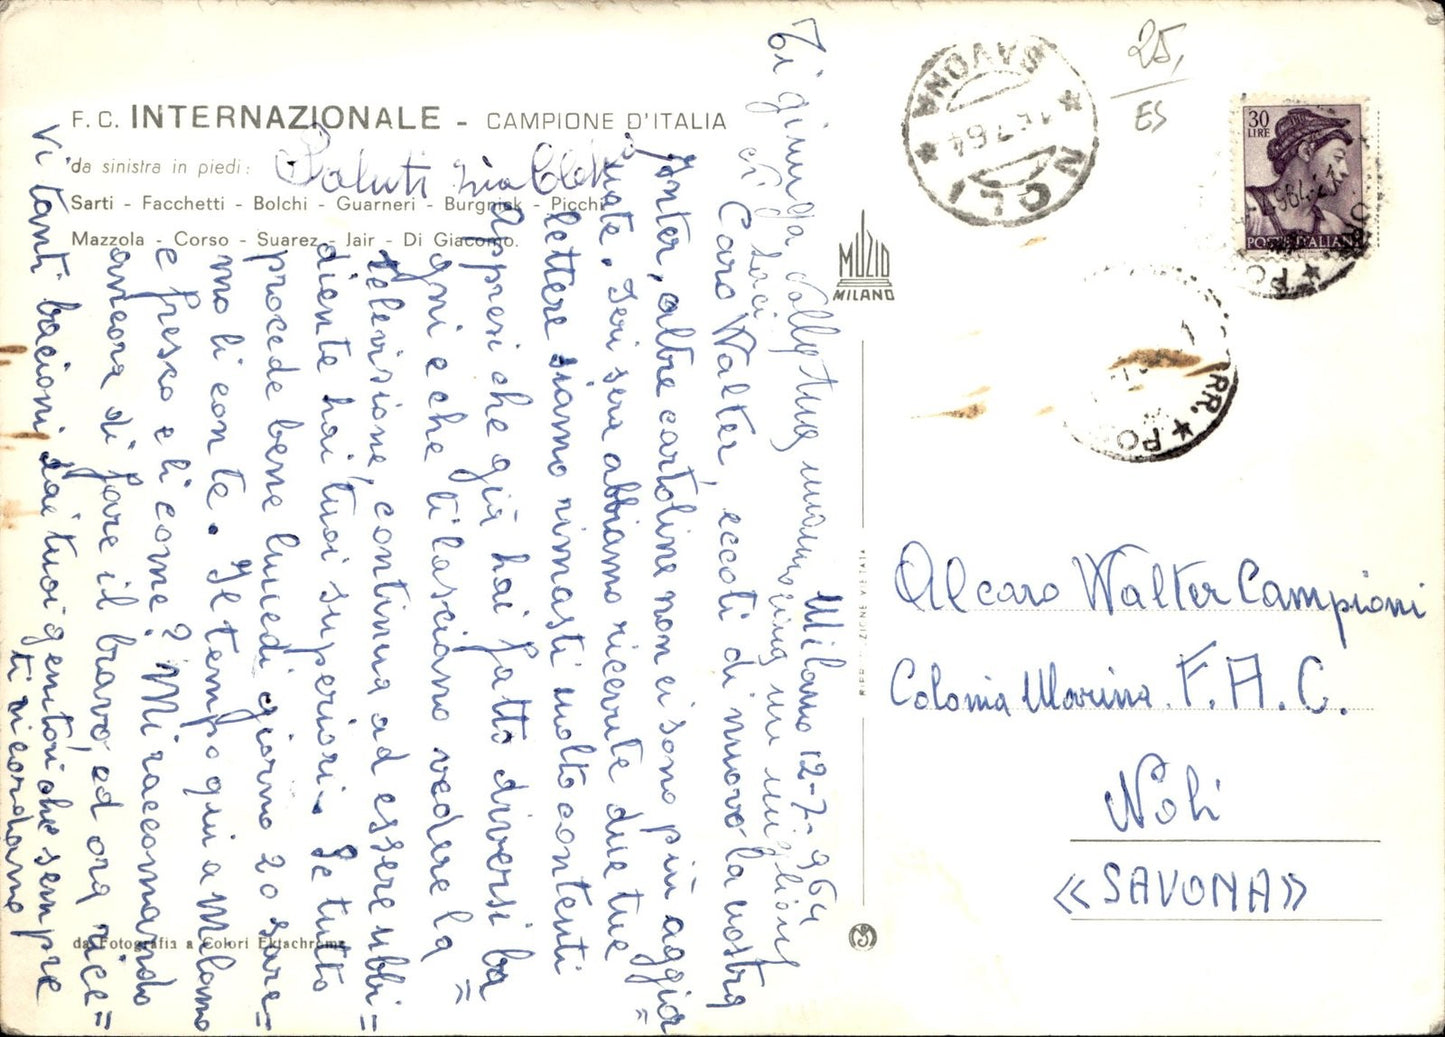 F. C. INTERNAZIONALE - CAMPIONE D'ITALIA
da sinistra in piedi:
Sarti - Facchetti - Bolchi - Guarneri - Burgnich - Picchi
Mazzola - Corso - Suarez - Jair - Di Giacomo.
Saluti zia
Milano 12-7-964
Caro Walter, eccoti di nuovo la nostra
Inter, altre cartoline non ci sono più aggior=
nate. Ieri sera abbiamo ricevute due tue
lettere siamo rimasti molto contenti
Appresi che già hai fatto diversi ba
gni e che ti lasciano vedere la
televisione, continua ad essere ubbi=
diente hai tuoi superiori. Se tutto
procede bene lunedi giorno 20 sare=
mo li con te. Il tempo qui a Milano
e fresco e li come? Mi raccomando
ancora di fare il bravo, ed ora rice=
vi tanti bacioni dai tuoi genitori che sempre
ti ricordano
Ti giunga
di baci
da Fotografia a Colori Ektachrome
MUZIO
MILANO
RIPRODUZIONE VIETATA
25,
ES
NOLI
SAVONA
30
LIRE
POSTE ITALIANE
Al caro Walter Campioni
Colonia Marina F.A.C.
Noli
«SAVONA»